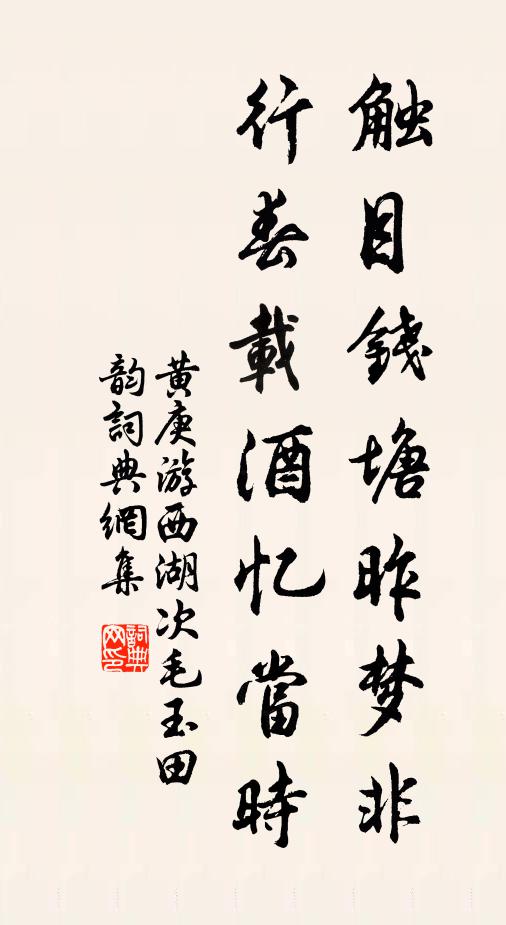 触目錢塘昨梦非
行春載酒忆當時
黄庚游西湖次毛玉田
韵詞典網集
詞典
网印